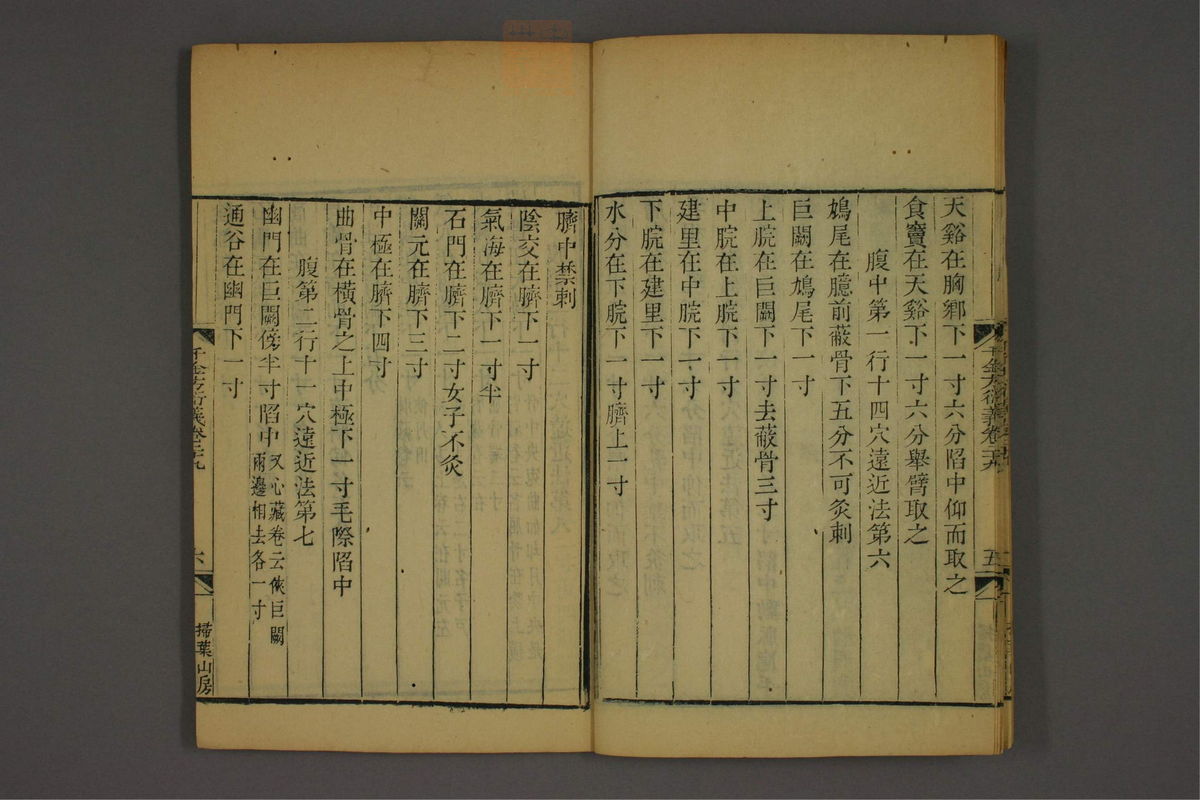 天谿在胸鄉下一寸六分陷中仰而取之
食竇在天谿下一寸六分舉臂取之
腹中第一行十四穴遠近法第六
鳩尾在臆前蔽骨下五分不可灸刺
巨闕在鳩尾下一寸
上脘在巨闕下一寸去蔽骨三寸
中脘在上脘下一寸
建里在中脘下一寸
下脘在建里下一寸
水分在下脘下一寸臍上一寸
臍中禁刺
陰交在臍下一寸
氣海在臍下一寸半
石門在臍下二寸女子不灸
關元在臍下三寸
中極在臍下四寸
曲骨在橫骨之上中極下一寸毛際陷中
腹第二行十一穴遠近法第七
幽門在巨闕傍半寸陷中又心藏卷云俠巨闕
兩邊相去各一寸
通谷在幽門下一寸
千金方衍義卷二十九
六
掃葉山房